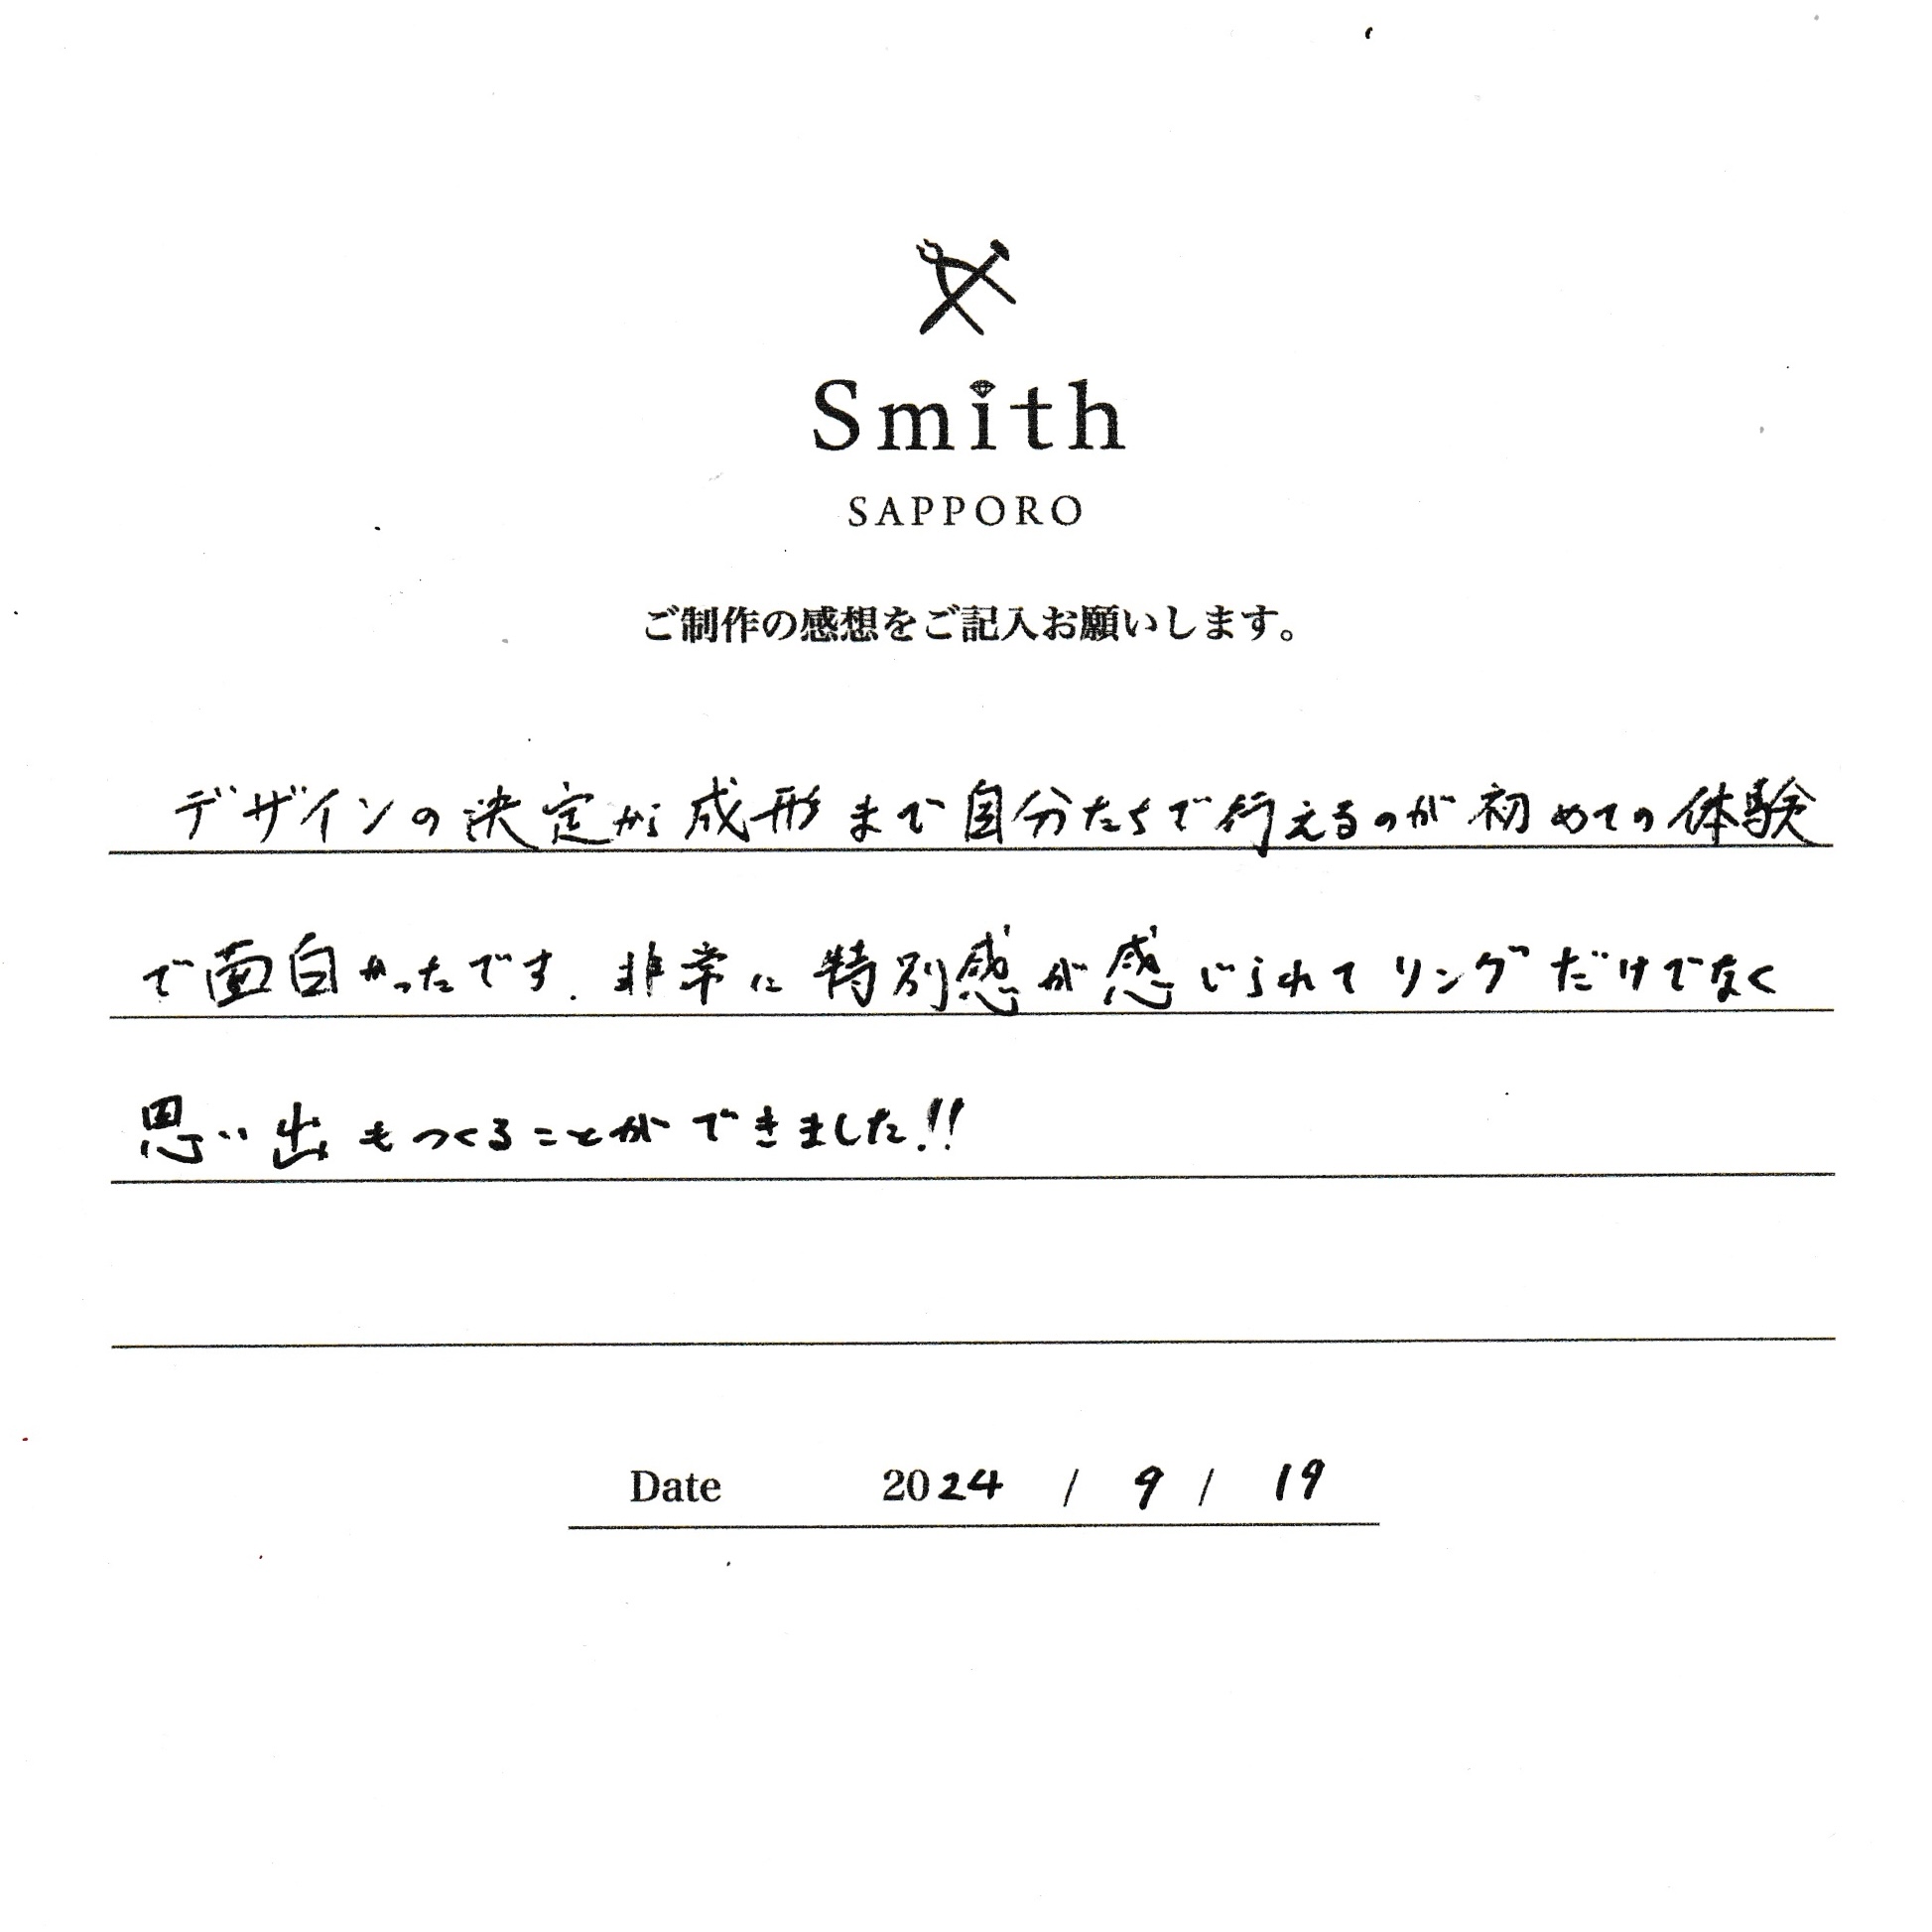 Smith
SAPPORO
ご制作の感想をご記入お願いします。
デザインの決定から成形まで自分たちで行えるのが初めての体験
で面白かったです. 非常に特別感が感じられてリングだけでなく
思い出もつくることができました!!
Date 2024 / 9 / 19